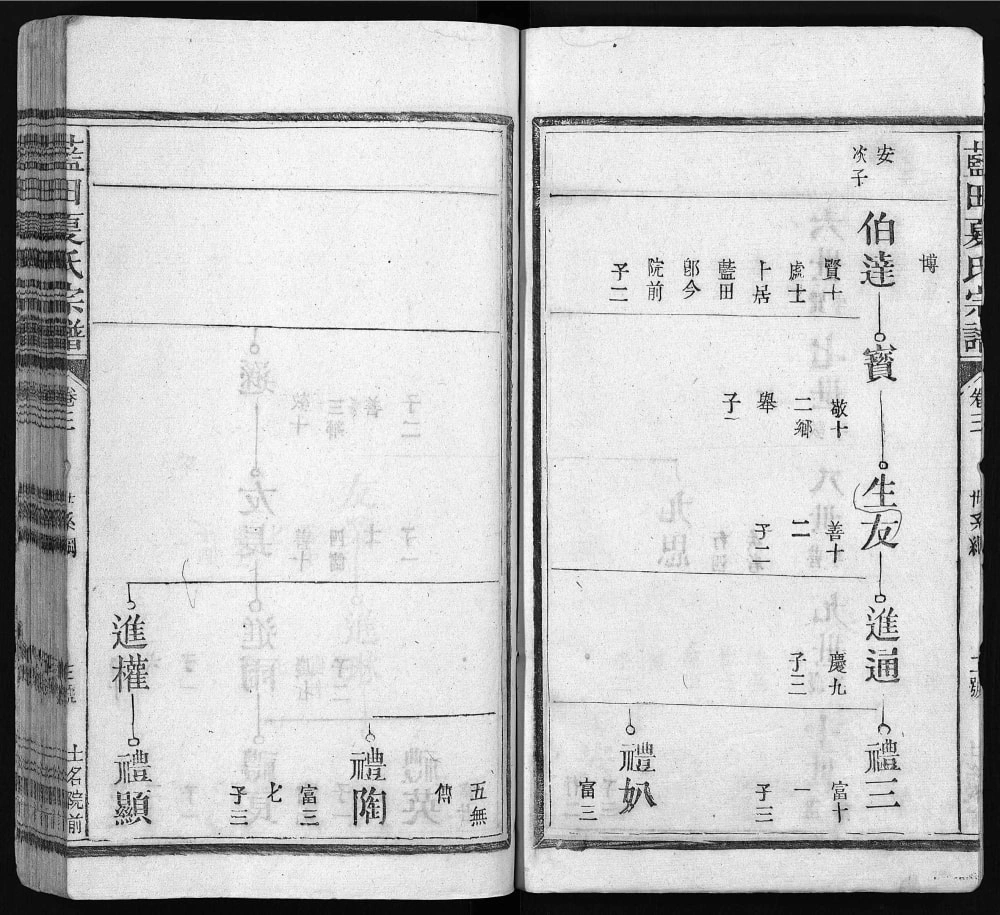 藍田夏氏宗譜
卷三
世系綱
安
次子
博
伯達
賢十
處士
卜居
藍田
郎今
院前
子二
寳
敬十
二鄉
舉
子一
生友
善十
二
子二
進通
慶九
子三
禮三
富十
一
子三
禮
富三
五無
傳
禮陶
富三
七
子三
進權
禮顯
藍田夏氏宗譜
卷三
世系綱
士名院前